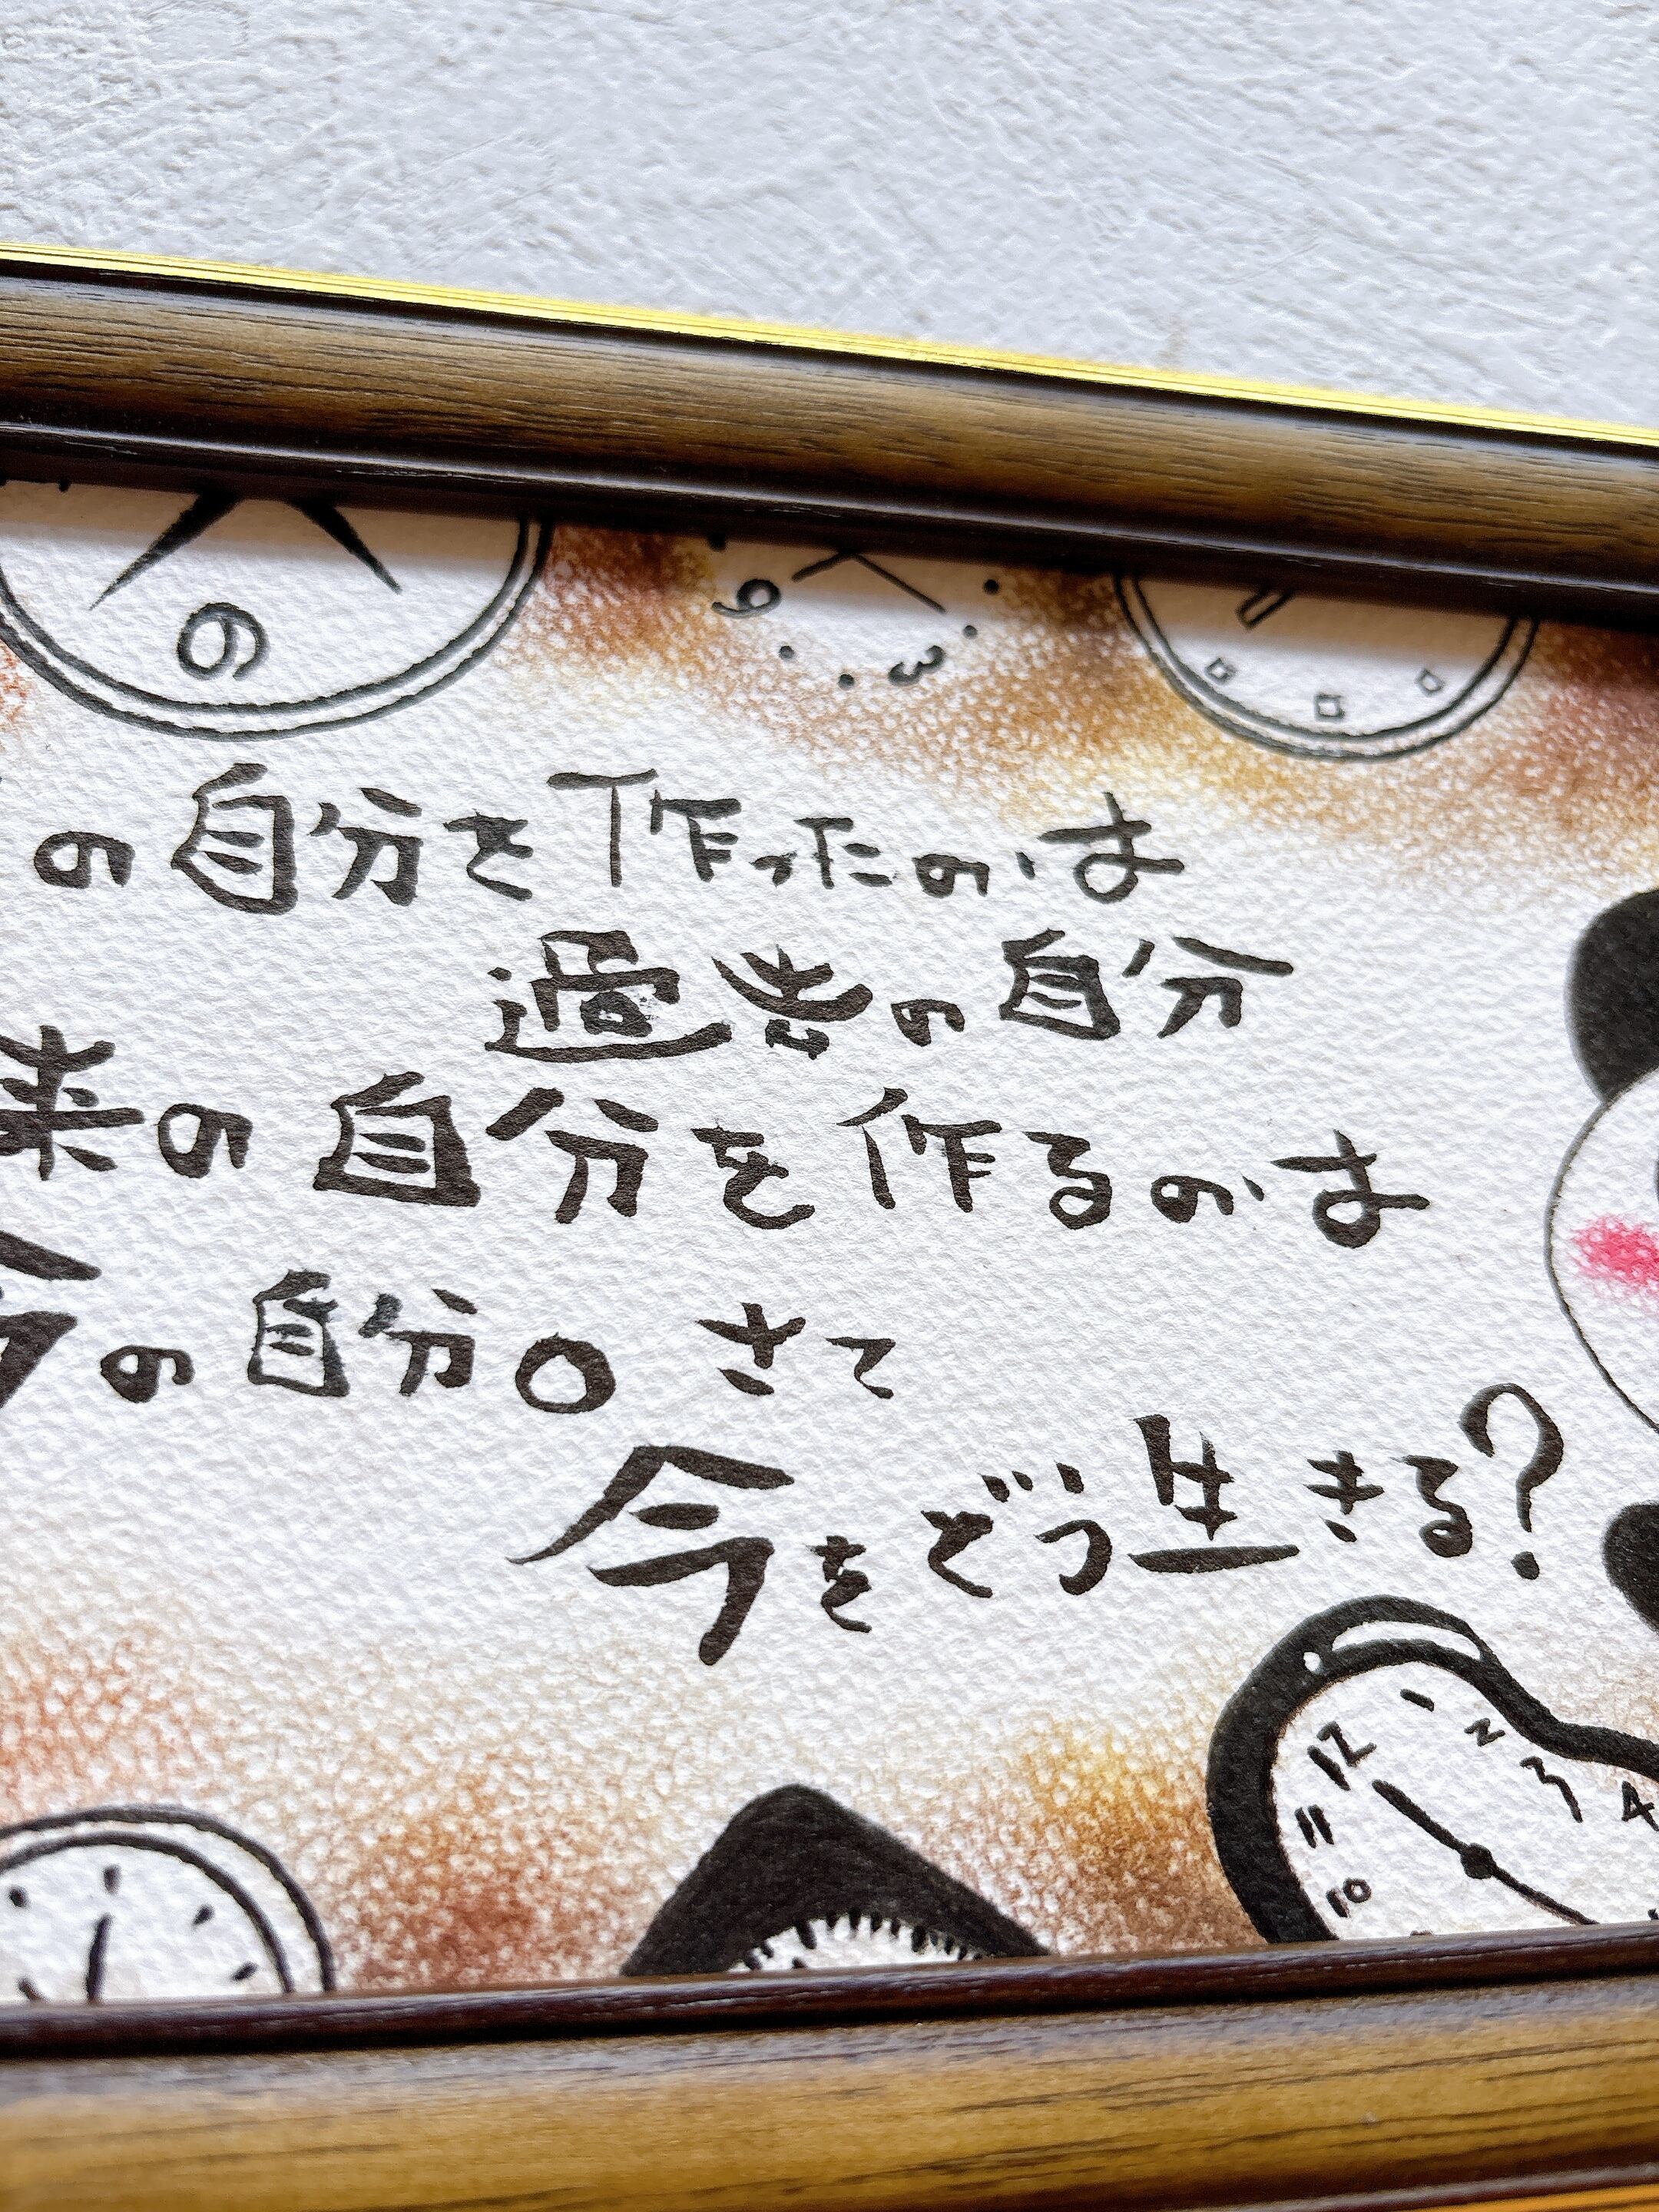 の自分を作ったのは
過去の自分
来の自分を作るのは
今の自分。さて
今をどう生きる?
6
9 3
12 1 2 3 4
11
10